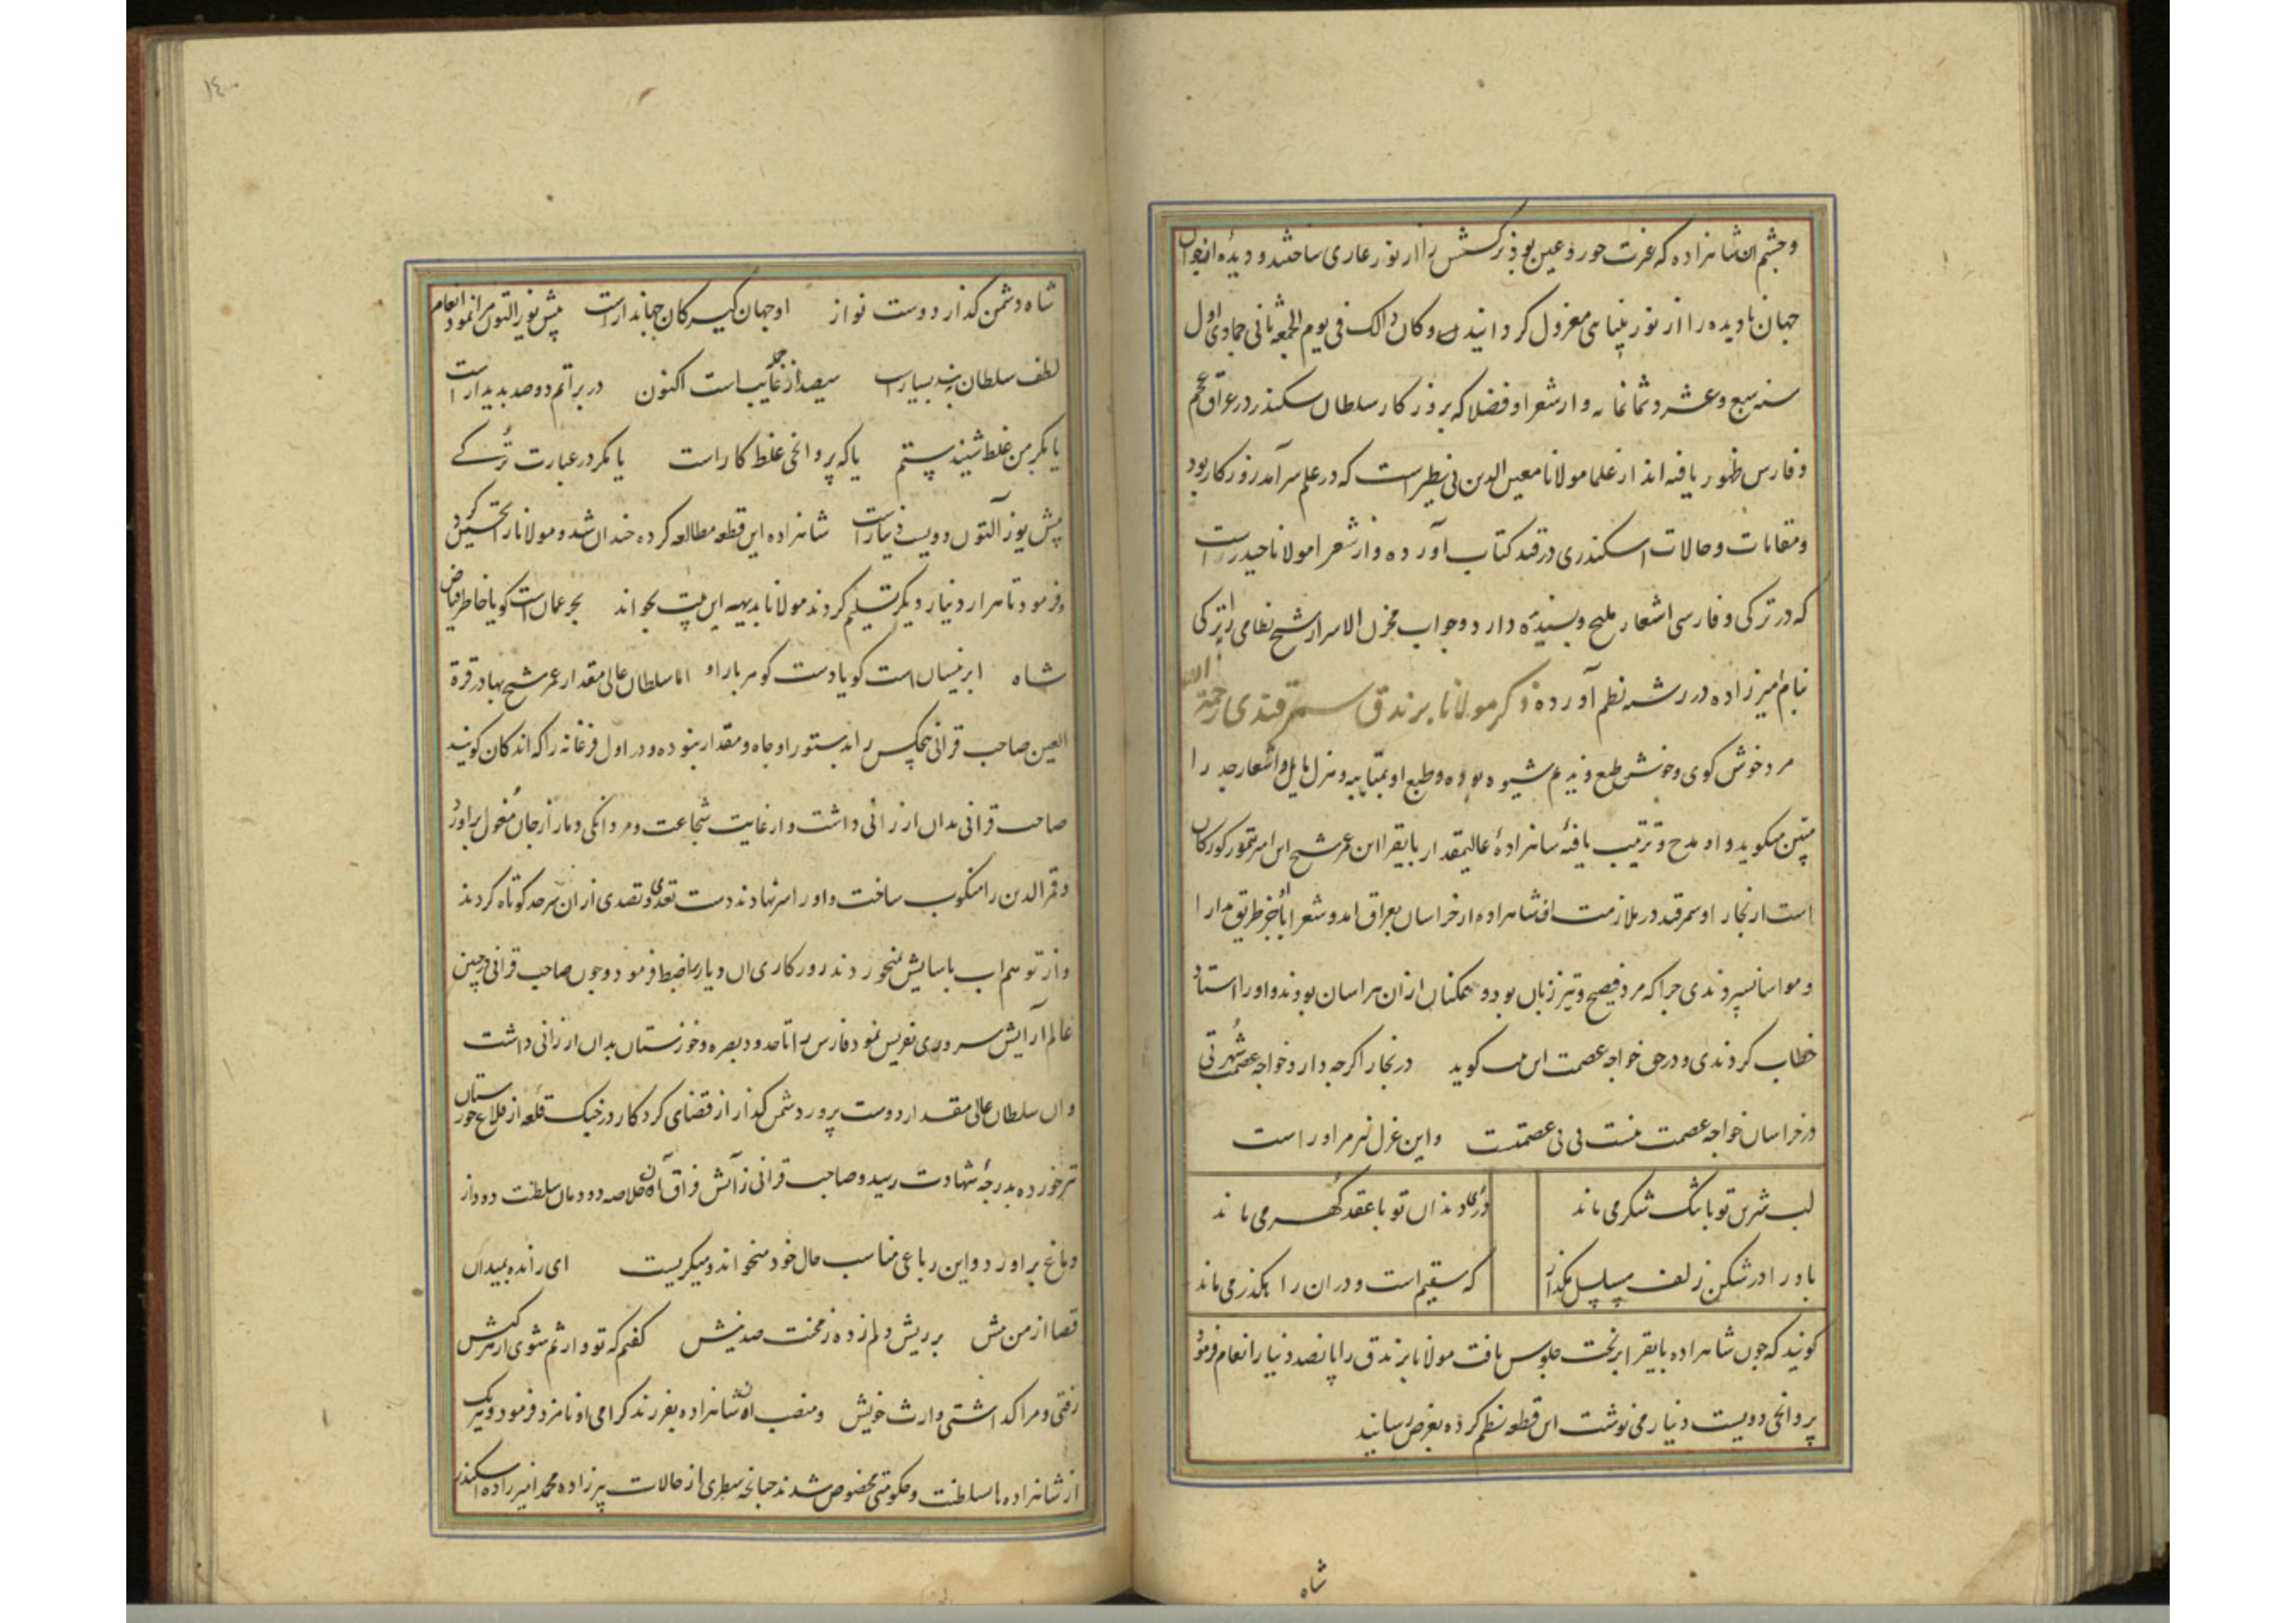 و چشم آن شاهزاده که غیرت حور و عین بود نرکسش را از نور عاری ساختند و دیدهٔ از جوانی
جهان نادیده را از نور بینایی معزول کردانیدند و کان ذالک فی یوم الجمعه ثانی جمادی اول
سنه سبع و عشر و ثمانمایه و از شعرا و فضلا که بروزکار سلطان سکندر در عراق عجم
و فارس ظهور یافته اند از علما مولانا معین الدین نی نطیر است که در علم سرآمد روزکار بود
و مقامات و حالات اسکندری در قید کتاب آورده و از شعرا مولانا حیدر است
که در ترکی و فارسی اشعار ملیح و پسندیده دارد و جواب مخزن الاسرار شیخ نظامی را بترکی
بنام امیرزاده در رشته نظم آورده ذکر مولانا برندق سمرقندی رحمة الله
مرد خوش کوی و خوش طبع و ندیم شیوه بوده و طبع او بمتایبه و هزل مایل و اشعار جد را
متین میکوید و او مدح و ترتیب یافتهٔ شاهزادهٔ عالیمقدار بایقرا ابن عمر شیخ ابن امیر تیمور کورکان
است از بخارا و سمرقند در ملازمت آن شاهزاده از خراسان بعراق آمد و شعرا با او جز طریق مدارا
و مواسا نسپردندی چرا که مرد فصیح و تیز زبان بود و همکنان ازان هراسان بودند و او را استاد
خطاب کردندی و در حق خواجه عصمت این میکوید در بخارا کرچه دارد خواجه عصمت شهرتی
در خراسان خواجه عصمت نیست بی بی عصمتست و این غزل نیز مر او راست
لب شیرین تو با تنک شکر می ماند
در دندان تو با عقد کهر می ماند
باد را در شکن زلف مسلسل مکذار
که سقیم است و در ان را بکذر می ماند
کویند که چون شاهزاده بایقرا بر تخت جلوس یافت مولانا برندق را پانصد دینار انعام فرمود
پروانچی دویست دینار می نوشت این قطعه نظم کرده بعرض رسانید
شاه
۱٤۰
شاه دشمن کداز دوست نواز او جهان کیر کان جهاندار است پیش یوز التون مرا نمود انعام
لطف سلطان به بنده بسیار است سیصد از جمله غایب است اکنون در براتم دو صد پدیدار است
یا مکر من غلط شنیدستم یا که پروانچی غلط کار است یا مکر در عبارت ترکی
پیش یوز آلتون دویست دینار است شاهزاده این قطعه مطالعه کرده خندان شد و مولانا را تحسین کرد
و فرمود تا هزار دینار دیکر تسلیم کردند مولانا بدیهه این بیت بخواند بحر عمان است کویا خاطر فیاض
شاه ابر نیسان است کویا دست کوهر بار او اما سلطان عالی مقدار عمر شیخ بهادر قرة
العین صاحب قرانی هیچکس را بدستور او جاه و مقدار نبوده و در اول فرغانه را که اندکان کویند
صاحب قرانی بدان ارزانی داشت و از غایت شجاعت و مردانکی دمار از جان مغول براورد
و قمرالدین را منکوب ساخت و او را سر نهادند دست تعدی و تصدی از ان سرحد کوتاه کردند
و از توهم اب باسایش نمیخوردند روزکاری ان دیار را ضبط فرمود و چون صاحب قرانی در چین
عالم آرایش سروری نفویس نمود فارس را تا حدود بصره و خوزستان بدان ارزانی داشت
و ان سلطان عالی مقدار دوست پرور دشمن کداز از قضای کردکار در جنک قلعه از قلاع خورستان
تیر خورده بدرجهٔ شهادت رسید و صاحب قرانی ز آتش فراق آن خلاصه دودمان سلطنت دود از
دماغ براورد و این رباعی مناسب حال خود میخواند و میکریست ای رانده بمیدان
قضا از من پیش بر ریش دلم زده ز محنت صد نیش کفتم که تو وارثم شوی از هر کیش
رفتی و مرا کداشتی وارث خویش و منصب ان شاهزاده بفرزند کرامی او نامزد فرمود و هر یک
از شاهزاده ها بسلطنت و حکومتی مخصوص شدند چنانچه سطری از حالات پیرزاده محمد امیرزاده اسکندر